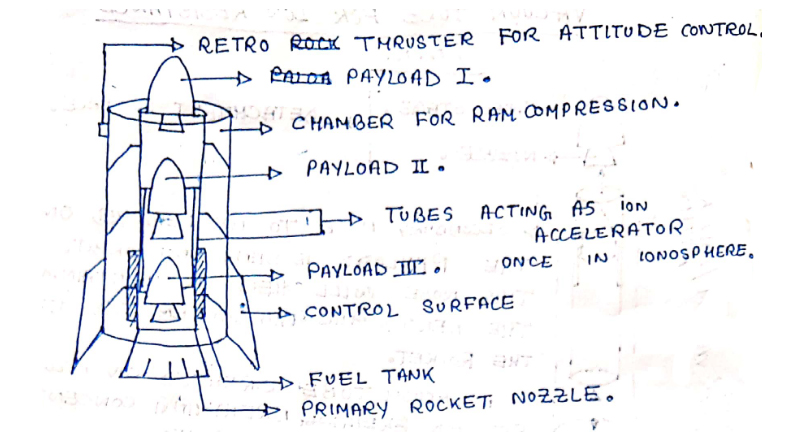 RETRO ROCK THRUSTER FOR ATTITUDE CONTROL.
PAYLOAD I.
CHAMBER FOR RAM COMPRESSION.
PAYLOAD II.
TUBES ACTING AS ION
ACCELERATOR
ONCE IN IONOSPHERE.
PAYLOAD III.
CONTROL SURFACE
FUEL TANK
PRIMARY ROCKET NOZZLE.